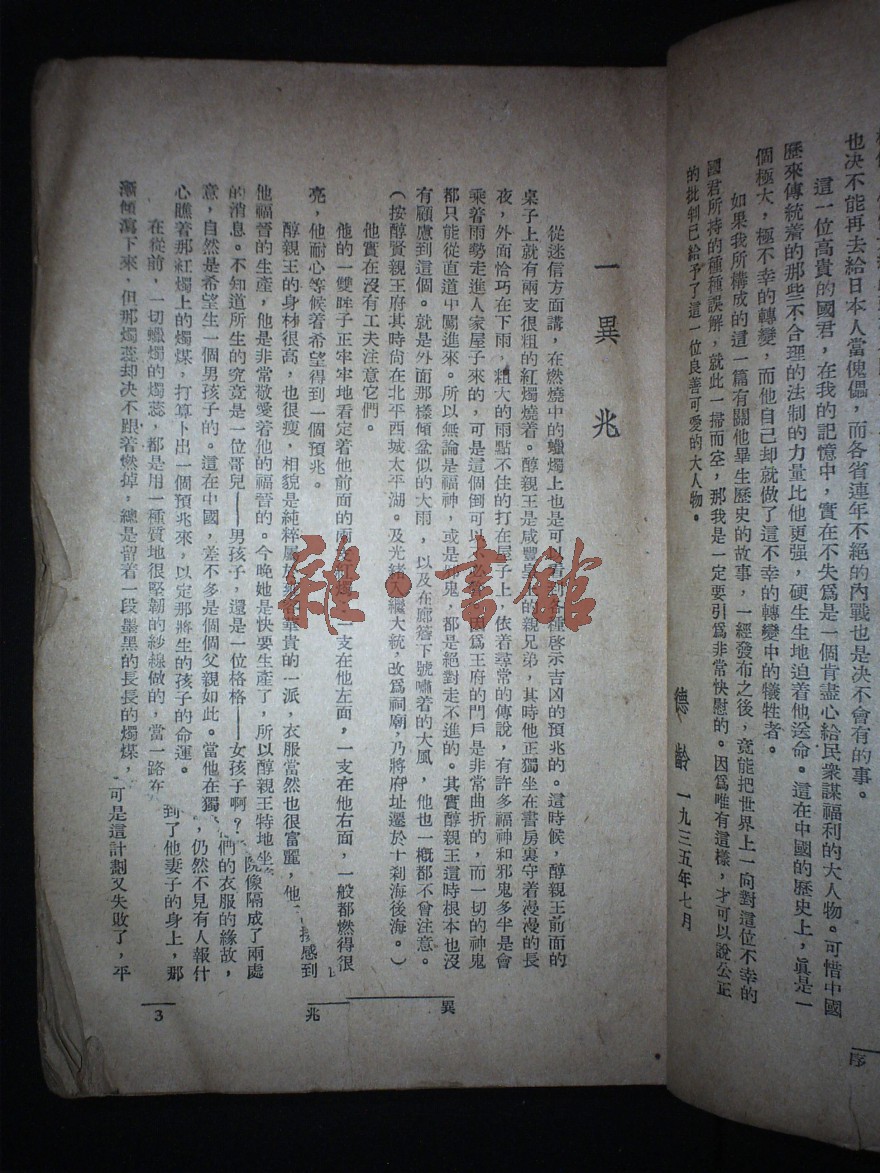 也決不能再去給日本人當傀儡，而各省連年不絕的內戰也是決不會有的事。
這一位高貴的國君，在我的記憶中，實在不失爲是一個肯盡心給民衆謀福利的大人物。可惜中國
歷來傳統着的那些不合理的法制的力量比他更强，硬生生地迫着他送命。這在中國的歷史上，眞是一
個極大，極不幸的轉變，而他自己却就做了這不幸的轉變中的犧牲者。
如果我所構成的這一篇有關他畢生歷史的故事，一經發布之後，竟能把世界上一向對這位不幸的
國君所持的種種誤解，就此一掃而空，那我是一定要引爲非常快慰的。因爲唯有這樣，才可以說公正
的批判已給予了這一位良善可愛的大人物。
德齡 一九三五年七月
序
一 異兆
從迷信方面講，在燃燒中的蠟燭上也是可以看到各種啓示吉凶的預兆的。這時候，醇親王前面的
桌子上就有兩支很粗的紅燭燒着。醇親王是咸豐皇的親兄弟，其時他正獨坐在書房裏守着漫漫的長
夜，外面恰巧在下雨，粗大的雨點不住的打在屋子上，依着尋常的傳說，有許多福神和邪鬼多半是會
乘着雨勢走進人家屋子來的，可是這個倒可以，因爲王府的門戶是非常曲折的，而一切的神鬼
都只能從直道中闖進來。所以無論是福神，或是邪鬼，都是絕對走不進的。其實醇親王這時根本也沒
有顧慮到這個。就是外面那樣傾盆似的大雨，以及在廊簷下號嘯着的大風，他也一概都不曾注意。
（按醇賢親王府其時尙在北平西城太平湖。及光緒入繼大統，改爲祠廟，乃將府址遷於十刹海後海。）
他實在沒有工夫注意它們。
他的一雙眸子正牢牢地看定着他前面的兩支紅燭，一支在他左面，一支在他右面，一般都燃得很
亮，他耐心等候着希望得到一個預兆。
醇親王的身材很高，也很瘦，相貌是純粹屬於雍容華貴的一派，衣服當然也很富麗，他感到
他福晉的生產，他是非常敬愛着他的福晉的。今晚她是快要生產了，所以醇親王特地坐院像隔成了兩處
的消息。不知道所生的究竟是一位哥兒——男孩子，還是一位格格——女孩子啊？們的衣服的緣故，
意，自然是希望生一個男孩子的。這在中國，差不多是個個父親如此。當他在獨，仍然不見有人報什
心瞧着那紅燭上的燭煤，打算卜出一個預兆來，以定那將生的孩子的命運。到了他妻子的身上，那
在從前，一切蠟燭的燭蕊，都是用一種質地很堅韌的紗線做的，當一路在
漸傾瀉下來，但那燭蕊却决不跟着燃掉，總是留着一段墨黑的長長的燭煤，可是這計劃又失敗了，平
異兆
3
雜·書館